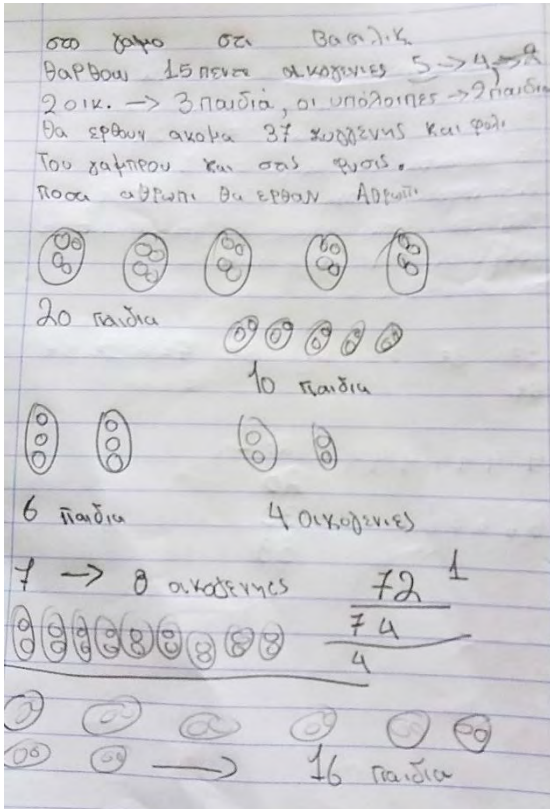 στο γαμο στι Βασιλικ
θαρθουν 15 πεντε οικογενιες 5 → 4
2 οικ. → 3 παιδιά, οι υπόλοιπες → 2 παιδια
θα ερθουν ακομα 37 και φιλι
του γαμπρου και στις
ποσα αθρωπι θα ερθαν
20 παιδια
10 παιδια
6 παιδια 4 οικογενιες
7 → 8 οικογενης 72 1
74
4
→ 16 παιδια